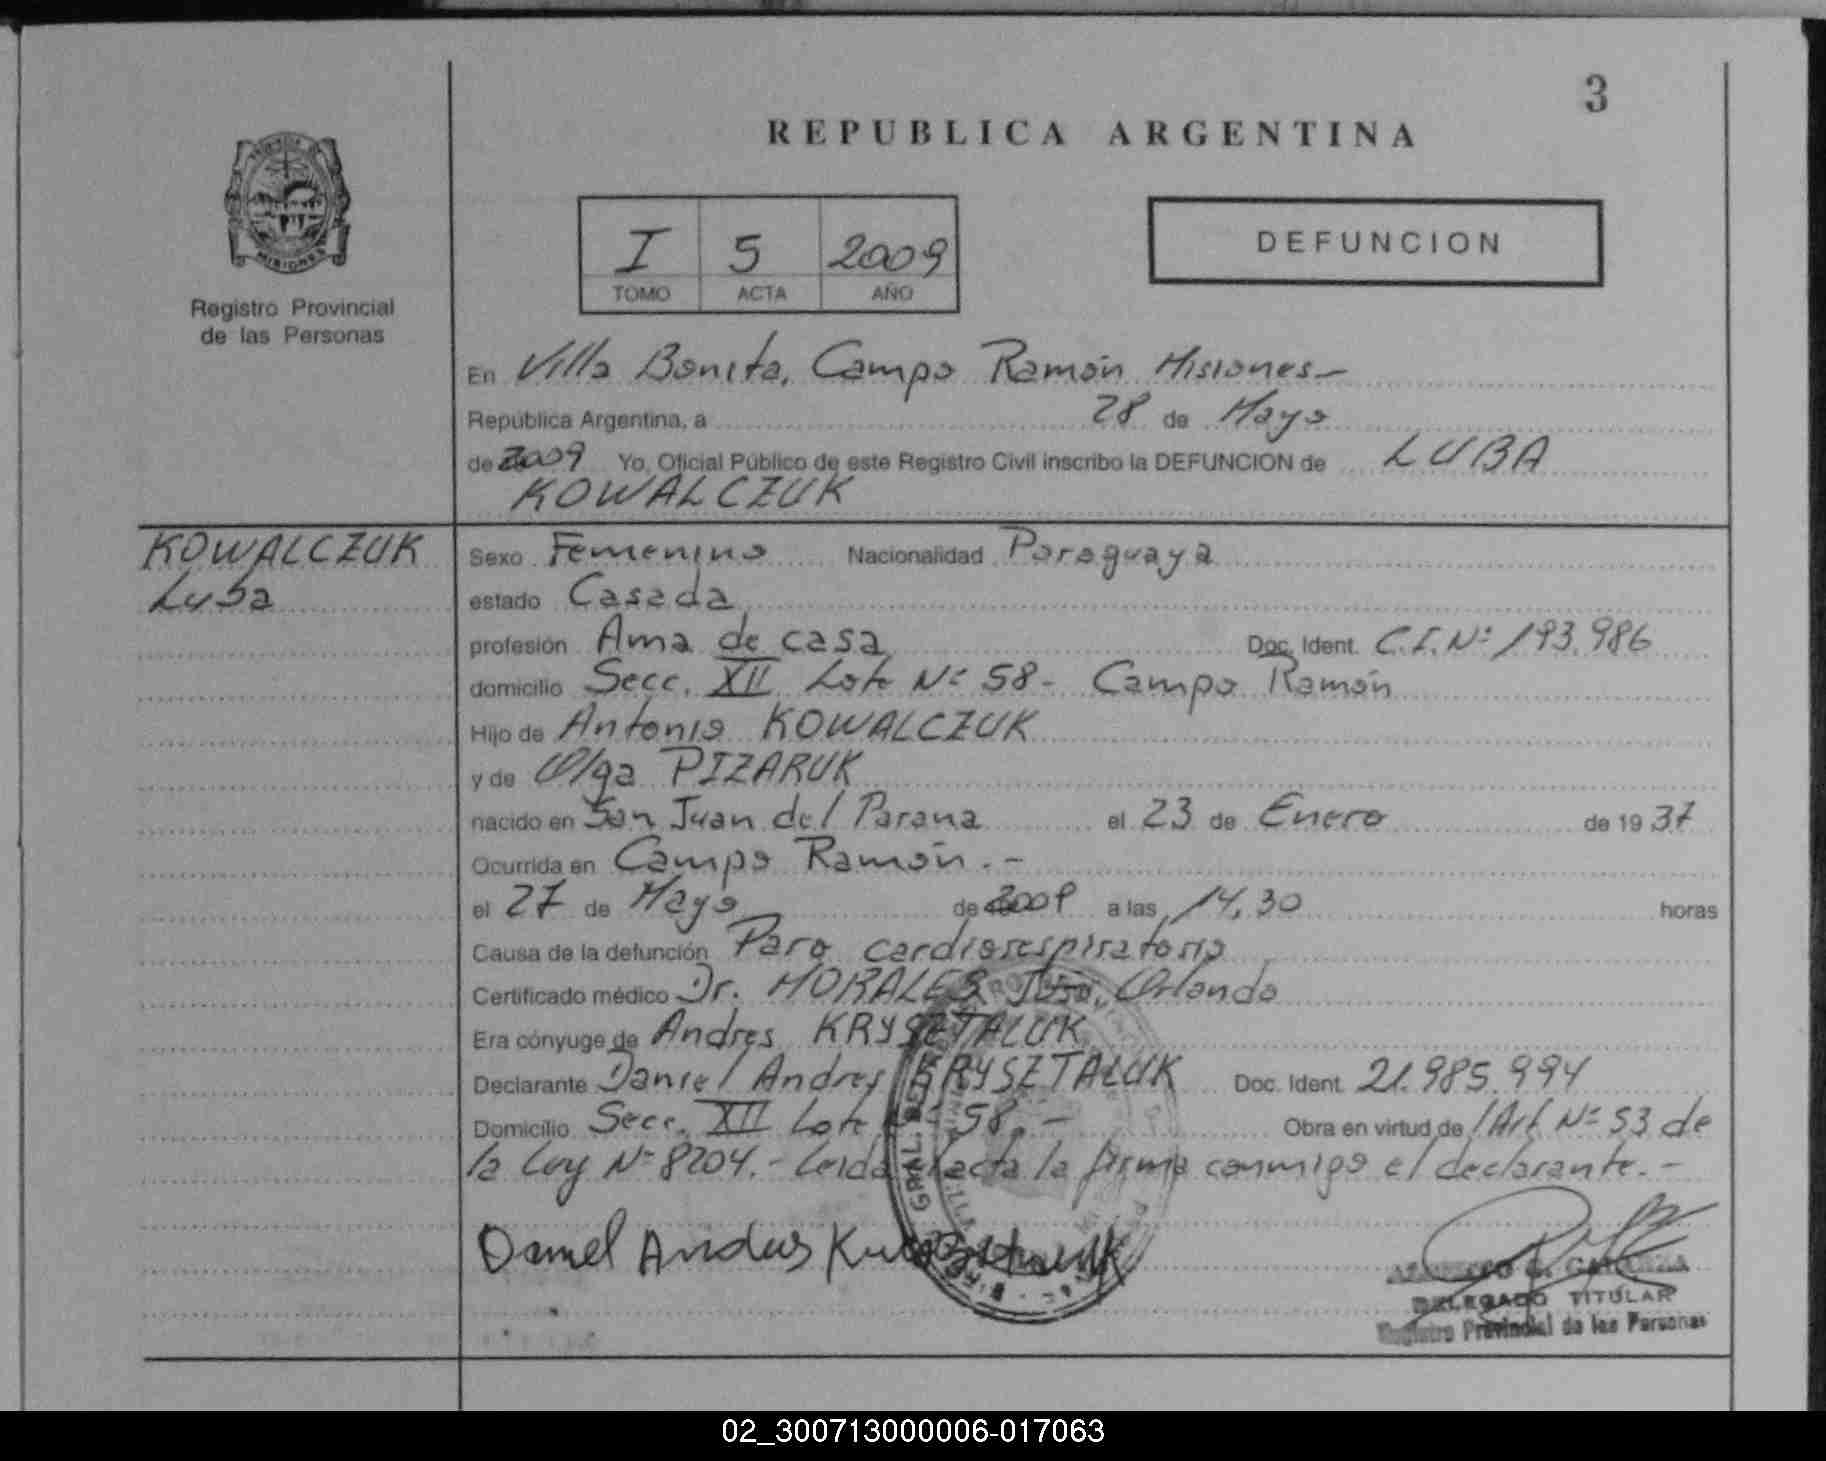 3
REPUBLICA ARGENTINA
MISIONES
Registro Provincial
de las Personas
I 5 2009
TOMO ACTA AÑO
DEFUNCION
En Villa Bonita, Campo Ramón Misiones-
República Argentina, a 28 de Mayo
de 2009 Yo, Oficial Público de este Registro Civil inscribo la DEFUNCION de LUBA
KOWALCZUK
KOWALCZUK
Luba
Sexo Femenino Nacionalidad Paraguaya
estado Casada
profesión Ama de casa Doc. Ident. C.I.Nº 193.986
domicilio Secc. XII Lote Nº 58- Campo Ramón
Hijo de Antonio KOWALCZUK
y de Olga PIZARUK
nacido en San Juan del Parana el 23 de Enero de 1937
Ocurrida en Campo Ramón.-
el 27 de Mayo de 2009 a las 14,30 horas
Causa de la defunción Paro cardiorespiratorio
Certificado médico Dr. MORALES Orlando
Era cónyuge de Andres KRYSZTALUK
Declarante Daniel Andres KRYSZTALUK Doc. Ident. 21.985.994
Domicilio Secc. XII Lote 58.- Obra en virtud de l'Art Nº 53 de
la Ley Nº 8204.- Leida el acta la firma conmigo el declarante.-
Daniel Andres
DELEGADO TITULAR
Registro Provincial de las Personas
02_300713000006-017063